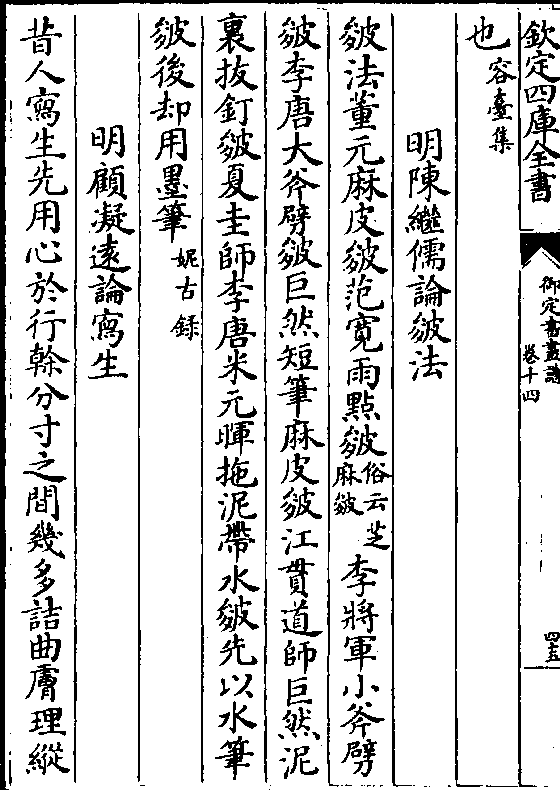 欽定四庫全書
御定書畫譜
卷十四
四十五
也容臺集
明陳繼儒論皴法
皴法董元麻皮皴范寛雨點皴俗云芝麻皴李將軍小斧劈
皴李唐大斧劈皴巨然短筆麻皮皴江貫道師巨然泥
裏抜釘皴夏圭師李唐米元暉拖泥帶水皴先以水筆
皴後却用墨筆妮古録
明顧凝逺論寫生
昔人寫生先用心於行榦分寸之間幾多詰曲膚理縱